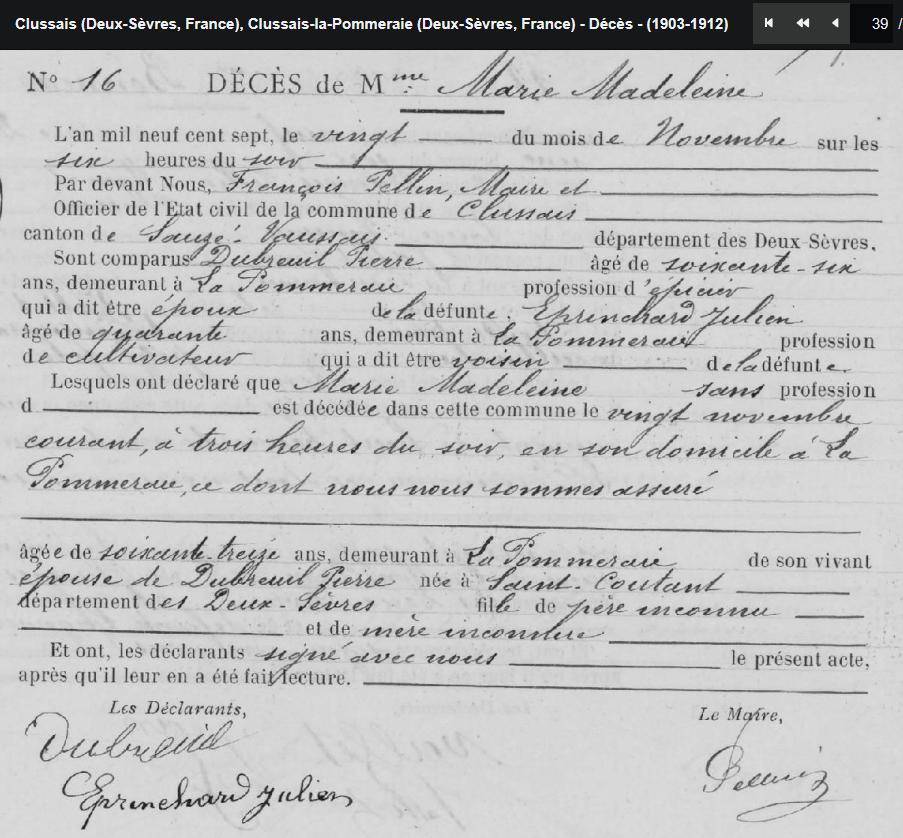 Clussais (Deux-Sèvres, France), Clussais-la-Pommeraie (Deux-Sèvres, France) - Décès - (1903-1912) 39 /
N° 16 DÉCÈS de Mme Marie Madeleine
L'an mil neuf cent sept, le vingt du mois de Novembre sur les
six heures du soir
Par devant Nous, François Pellin, Maire et
Officier de l'Etat civil de la commune de Clussais
canton de Sauzé-Vaussais département des Deux-Sèvres,
Sont comparus Dubreuil Pierre âgé de soixante-six
ans, demeurant à La Pommeraie profession d'épicier
qui a dit être époux de la défunte, Eprinchard Julien
âgé de quarante ans, demeurant à la Pommeraie profession
de cultivateur qui a dit être voisin de la défunte.
Lesquels ont déclaré que Marie Madeleine sans profession
d est décédée dans cette commune le vingt novembre
courant, à trois heures du soir, en son domicile à La
Pommeraie, ce dont nous nous sommes assuré
âgée de soixante-treize ans, demeurant à La Pommeraie de son vivant
épouse de Dubreuil Pierre née à Saint-Coutant
département des Deux-Sèvres fille de père inconnu
et de mère inconnue
Et ont, les déclarants signé avec nous le présent acte,
après qu'il leur en a été fait lecture.
Les Déclarants, Le Maire,
Dubreuil
Eprinchard Julien
Pellin